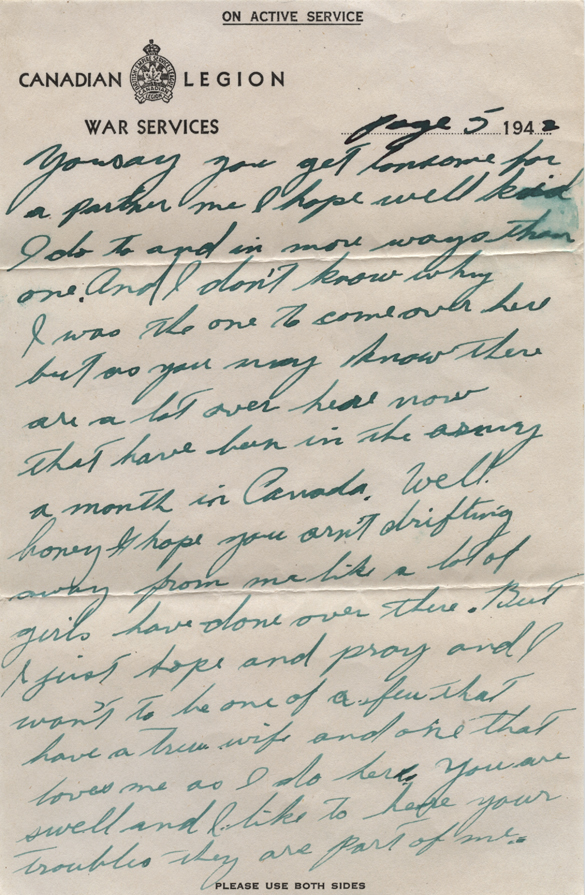 ON ACTIVE SERVICE
CANADIAN LEGION
WAR SERVICES
page 5 1942
You say you get lonsome for
a partner me I hope well kid
I do to and in more ways than
one. And I don't know why
I was the one to come over here
but as you may know there
are a lot over here now
that have been in the army
a month in Canada. Well
honey I hope you arn't drifting
away from me like a lot of
girls have done over there. But
I just hope and pray and I
want to be one of a few that
have a true wife and one that
loves me as I do her. You are
swell and I like to hear your
troubles they are part of me.
PLEASE USE BOTH SIDES